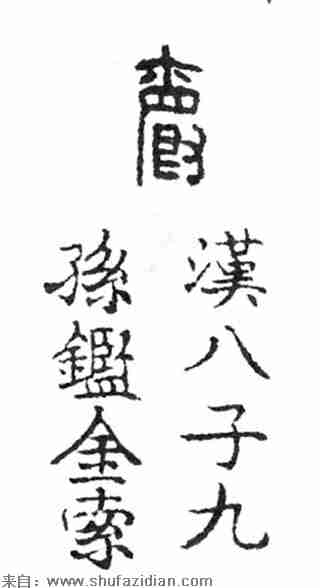 漢八子九
孫鑑金索
来自：www.shufazidian.com